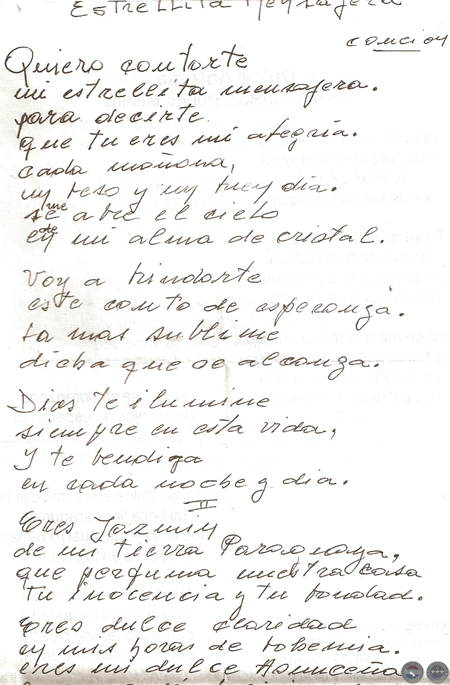 Estrellita Mensajera
canción
Quiero contarte
mi estrellita mensajera.
para decirte
que tu eres mi alegría.
cada mañana,
un beso y un buen día.
se me abre el cielo
en de mi alma de cristal.
Voy a brindarte
este canto de esperanza.
La mas sublime
dicha que se alcanza.
Dios te ilumine
siempre en esta vida,
Y te bendiga
en cada noche y dia.
II
Eres Jazmin
de mi tierra Paraguaya,
que perfuma nuestra casa
tu inocencia y tu bondad.
Eres dulce claridad
en mis horas de bohemia.
eres mi dulce Asunceña